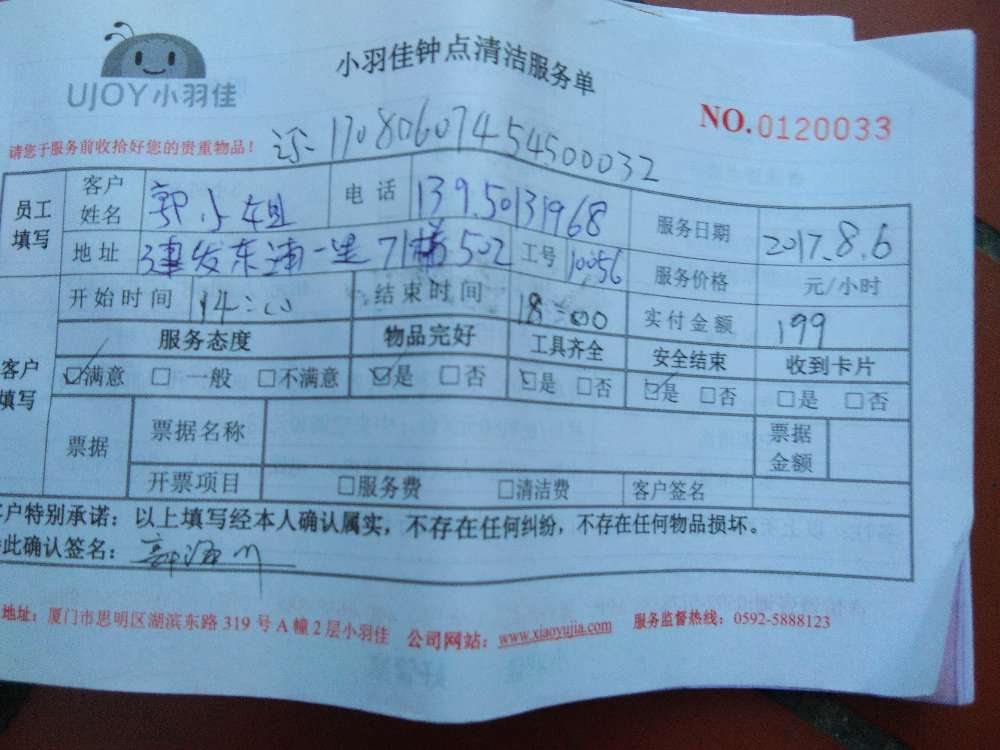 小羽佳钟点清洁服务单
UJOY小羽佳
NO.0120033
请您于服务前收拾好您的贵重物品！
17080607454500032
员工填写 客户姓名 郭小姐 电话 13950131968 服务日期 2017.8.6
地址 建发东浦一里71梯502 工号 10056 服务价格 元/小时
开始时间 14:00 结束时间 18:00 实付金额 199
客户填写 服务态度 物品完好 工具齐全 安全结束 收到卡片
☑满意 □一般 □不满意 ☑是 □否 ☑是 □否 ☑是 □否 □是 □否
票据 票据名称 票据金额
开票项目 □服务费 □清洁费 客户签名
客户特别承诺：以上填写经本人确认属实，不存在任何纠纷，不存在任何物品损坏。
此确认签名：
地址：厦门市思明区湖滨东路319号A幢2层小羽佳 公司网站：www.xiaoyujia.com 服务监督热线：0592-5888123